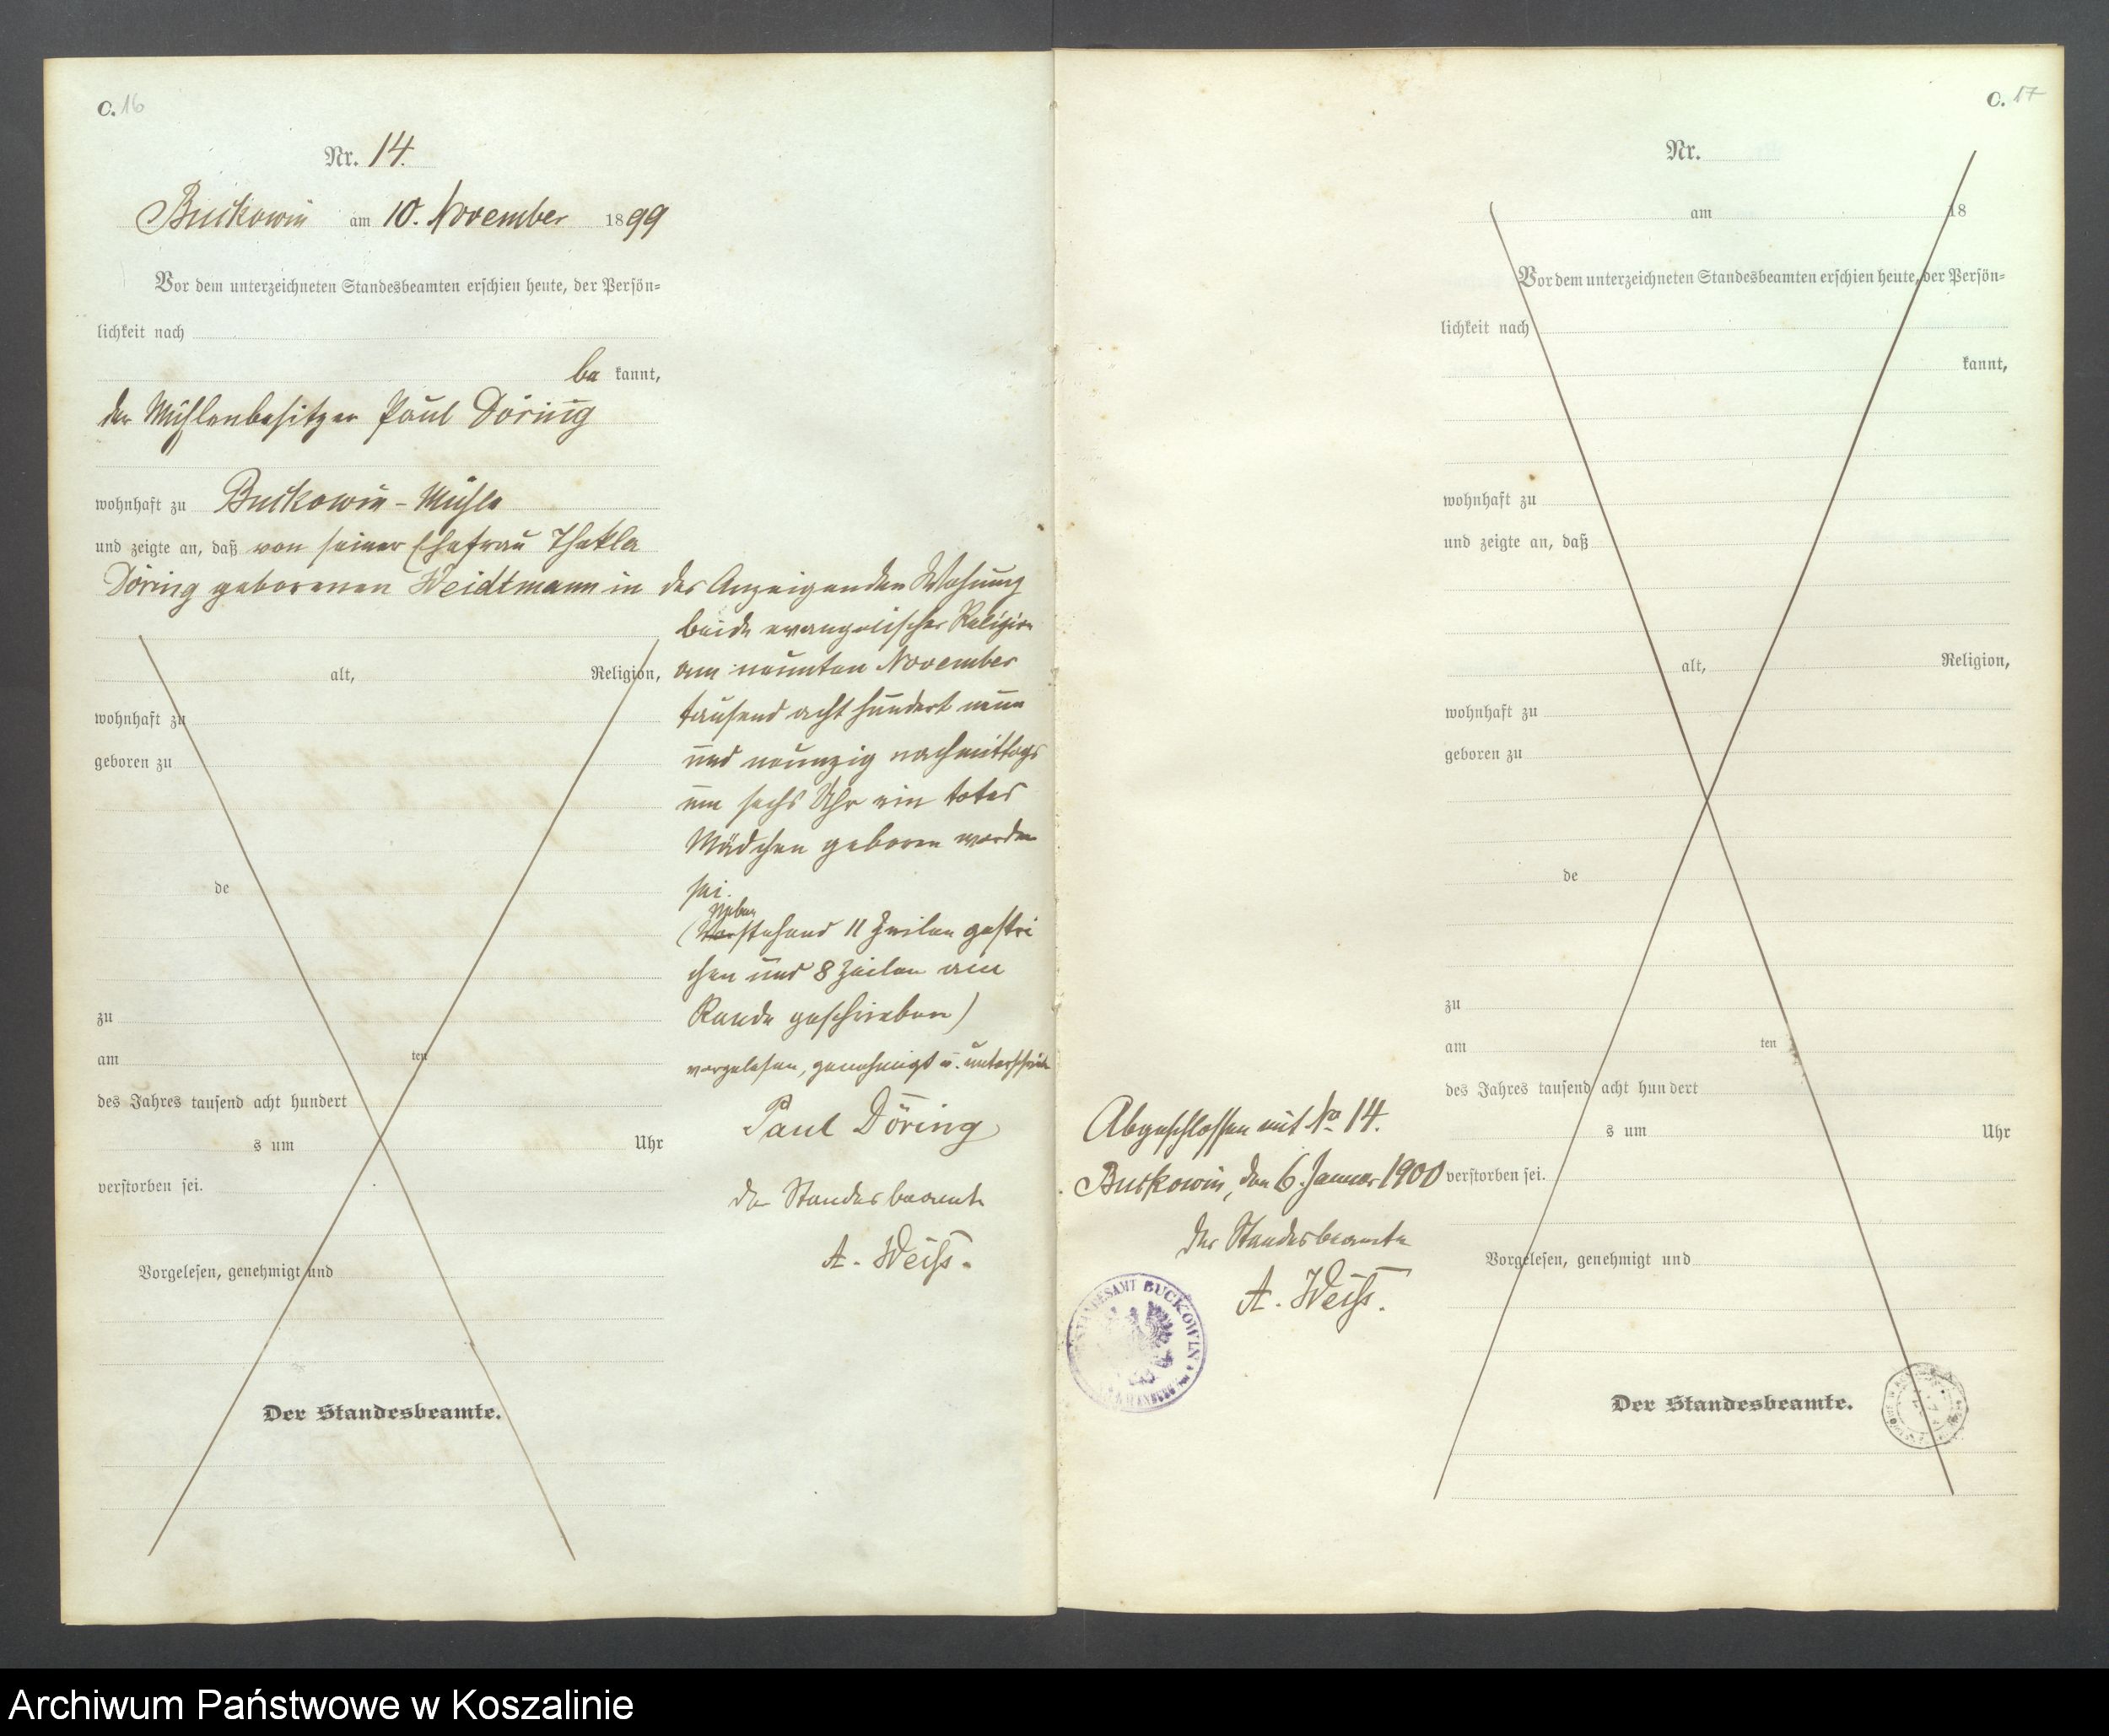 C. 16
Nr. 14.
Buckowin am 10. November 1899
Vor dem unterzeichneten Standesbeamten erschien heute, der Persön-
lichkeit nach
be kannt,
der Mühlenbesitzer Paul Döring
wohnhaft zu Buckowin-Mühle
und zeigte an, daß von seiner Ehefrau Thekla
Döring geborenen Weidtmann in des Anzeigenden Wohnung
beide evangelischer Religion
alt, Religion, am neunten November
wohnhaft zu tausend acht hundert neun
geboren zu und neunzig nachmittags
um sechs Uhr ein totes
Mädchen geboren worden
de sei.
Neben
(Vorstehend 11 Zeilen gestri
chen und 8 Zeilen am
zu Rande geschrieben)
am ten vorgelesen, genehmigt u. unterschrieb
des Jahres tausend acht hundert Paul Döring
s um Uhr
verstorben sei. Der Standesbeamte
Vorgelesen, genehmigt und A. Weiß.
Der Standesbeamte.
C. 17
Nr.
am 18
Vor dem unterzeichneten Standesbeamten erschien heute, der Persön-
lichkeit nach
kannt,
wohnhaft zu
und zeigte an, daß
alt, Religion,
wohnhaft zu
geboren zu
de
zu
am ten
des Jahres tausend acht hundert
Abgeschlossen mit No 14. s um Uhr
Buckowin, den 6. Januar 1900 verstorben sei.
der Standesbeamte
Vorgelesen, genehmigt und
A. Weiß.
STANDESAMT BUCKOWIN
Der Standesbeamte.
Archiwum Państwowe w Koszalinie